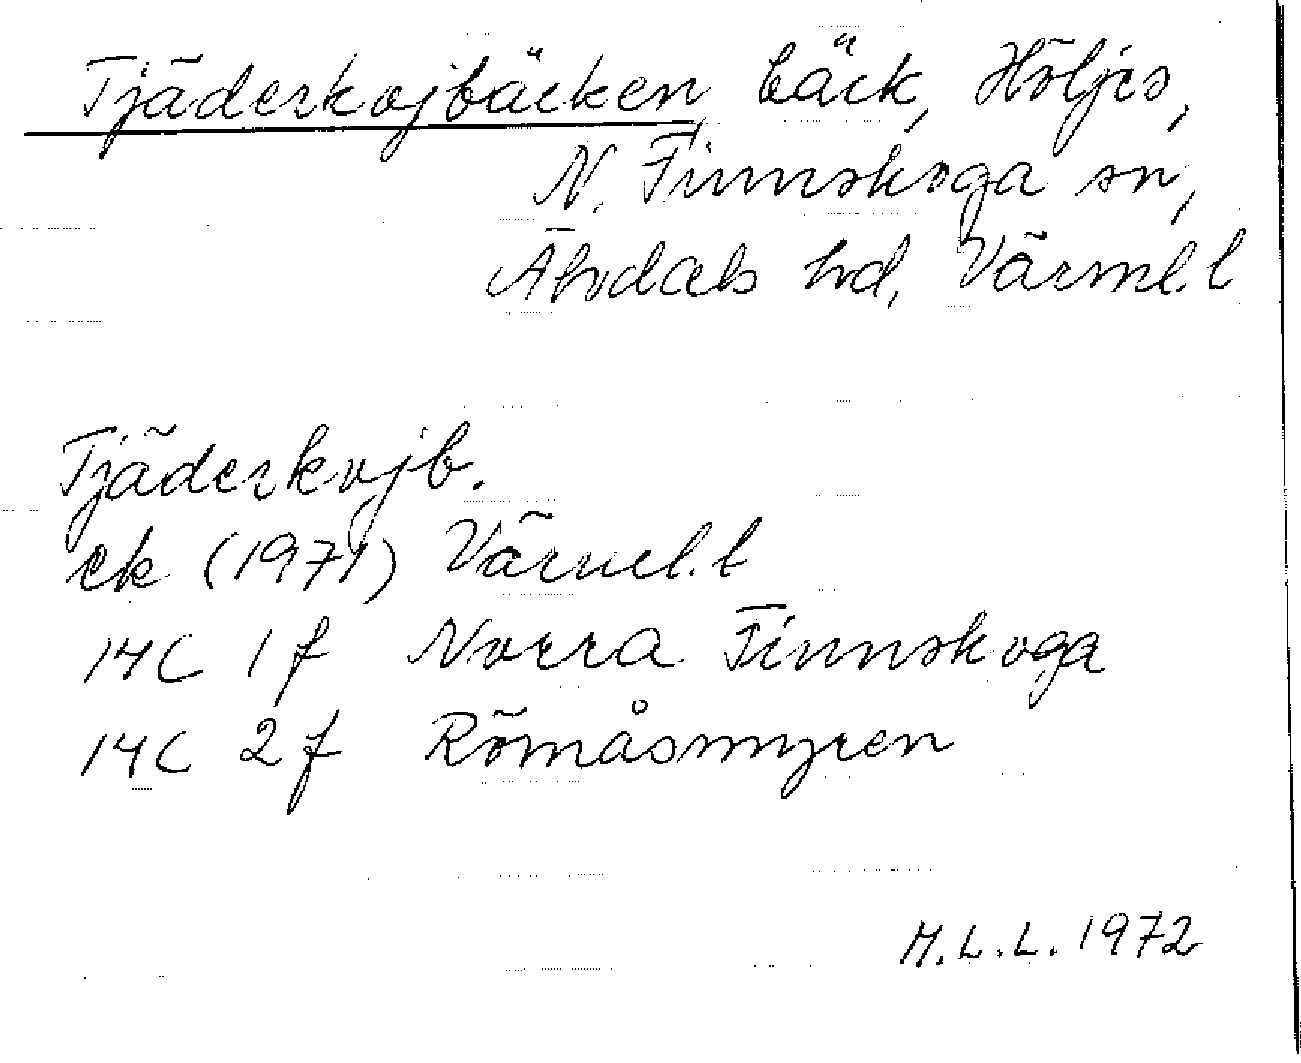 Tjäderkojbäcken, bäck, Höljes,
N. Finnskoga sn,
Älvdals hd, Värml. l
Tjäderkojb.
ek (1971) Värml. l
14C 1f Norra Finnskoga
14C 2f Römåsmyren
M.L.L. 1972